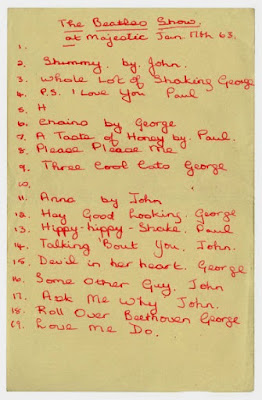 The Beatles Show.
at Majestic Jan. 17th 63.
1.
2. Shimmy. by. John.
3. Whole Lot of Shaking George
4. P.S. I Love You Paul
5. H
6. Chains by George
7. A Taste of Honey by. Paul.
8. Please Please Me
9. Three Cool Cats George
10.
11. Anna by John
12. Hay Good Looking. George
13. Hippy-hippy-Shake. Paul
14. Talking 'Bout You. John.
15. Devil in her heart. George
16. Some Other Guy. John
17. Ask Me Why John.
18. Roll Over Beethoven George
19. Love Me Do.